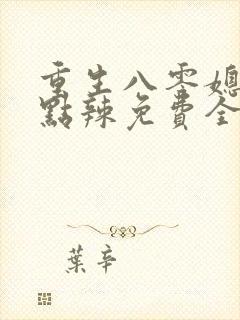 重生八零媳
點辣免費全
葉辛